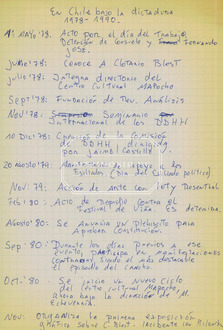 En Chile bajo la dictadura
1978-1990.
1º MAYO '78. Acto por el día del Trabajo
Detención de Gonzalo y Fernando
José.
JUNIO '78: Conoce a Clotario Blest
Julio '78: Integra directorio del
Centro Cultural Mapocho
Sept '78: Fundación de Rev. Análisis
Nov '78: Seminario
Internacional de los DDHH
10 Dic '78: de la Comisión
de DDHH dirigida
por Jaime Castillo V.
20 Agosto '79: de apoyo a los
Exiliados (Día del Exiliado político)
Nov. 79: Acción de Arte con Lotty Rosenthal
Feb. 80: Acto de repudio contra el
Festival de Viña es detenida.
Agosto '80: Se anuncia un Plebiscito para
aprobar Constitución.
Sep. 80: Durante los días previos a ese
evento, participa en manifestaciones
siendo el más destacable
el episodio del
Oct. 80 Se inicia un Nuevo Ciclo
del Centro Cultural Mapocho,
ahora bajo la dirección de M.
Nov: Organiza la primera exposición
gráfica sobre C. Blest -